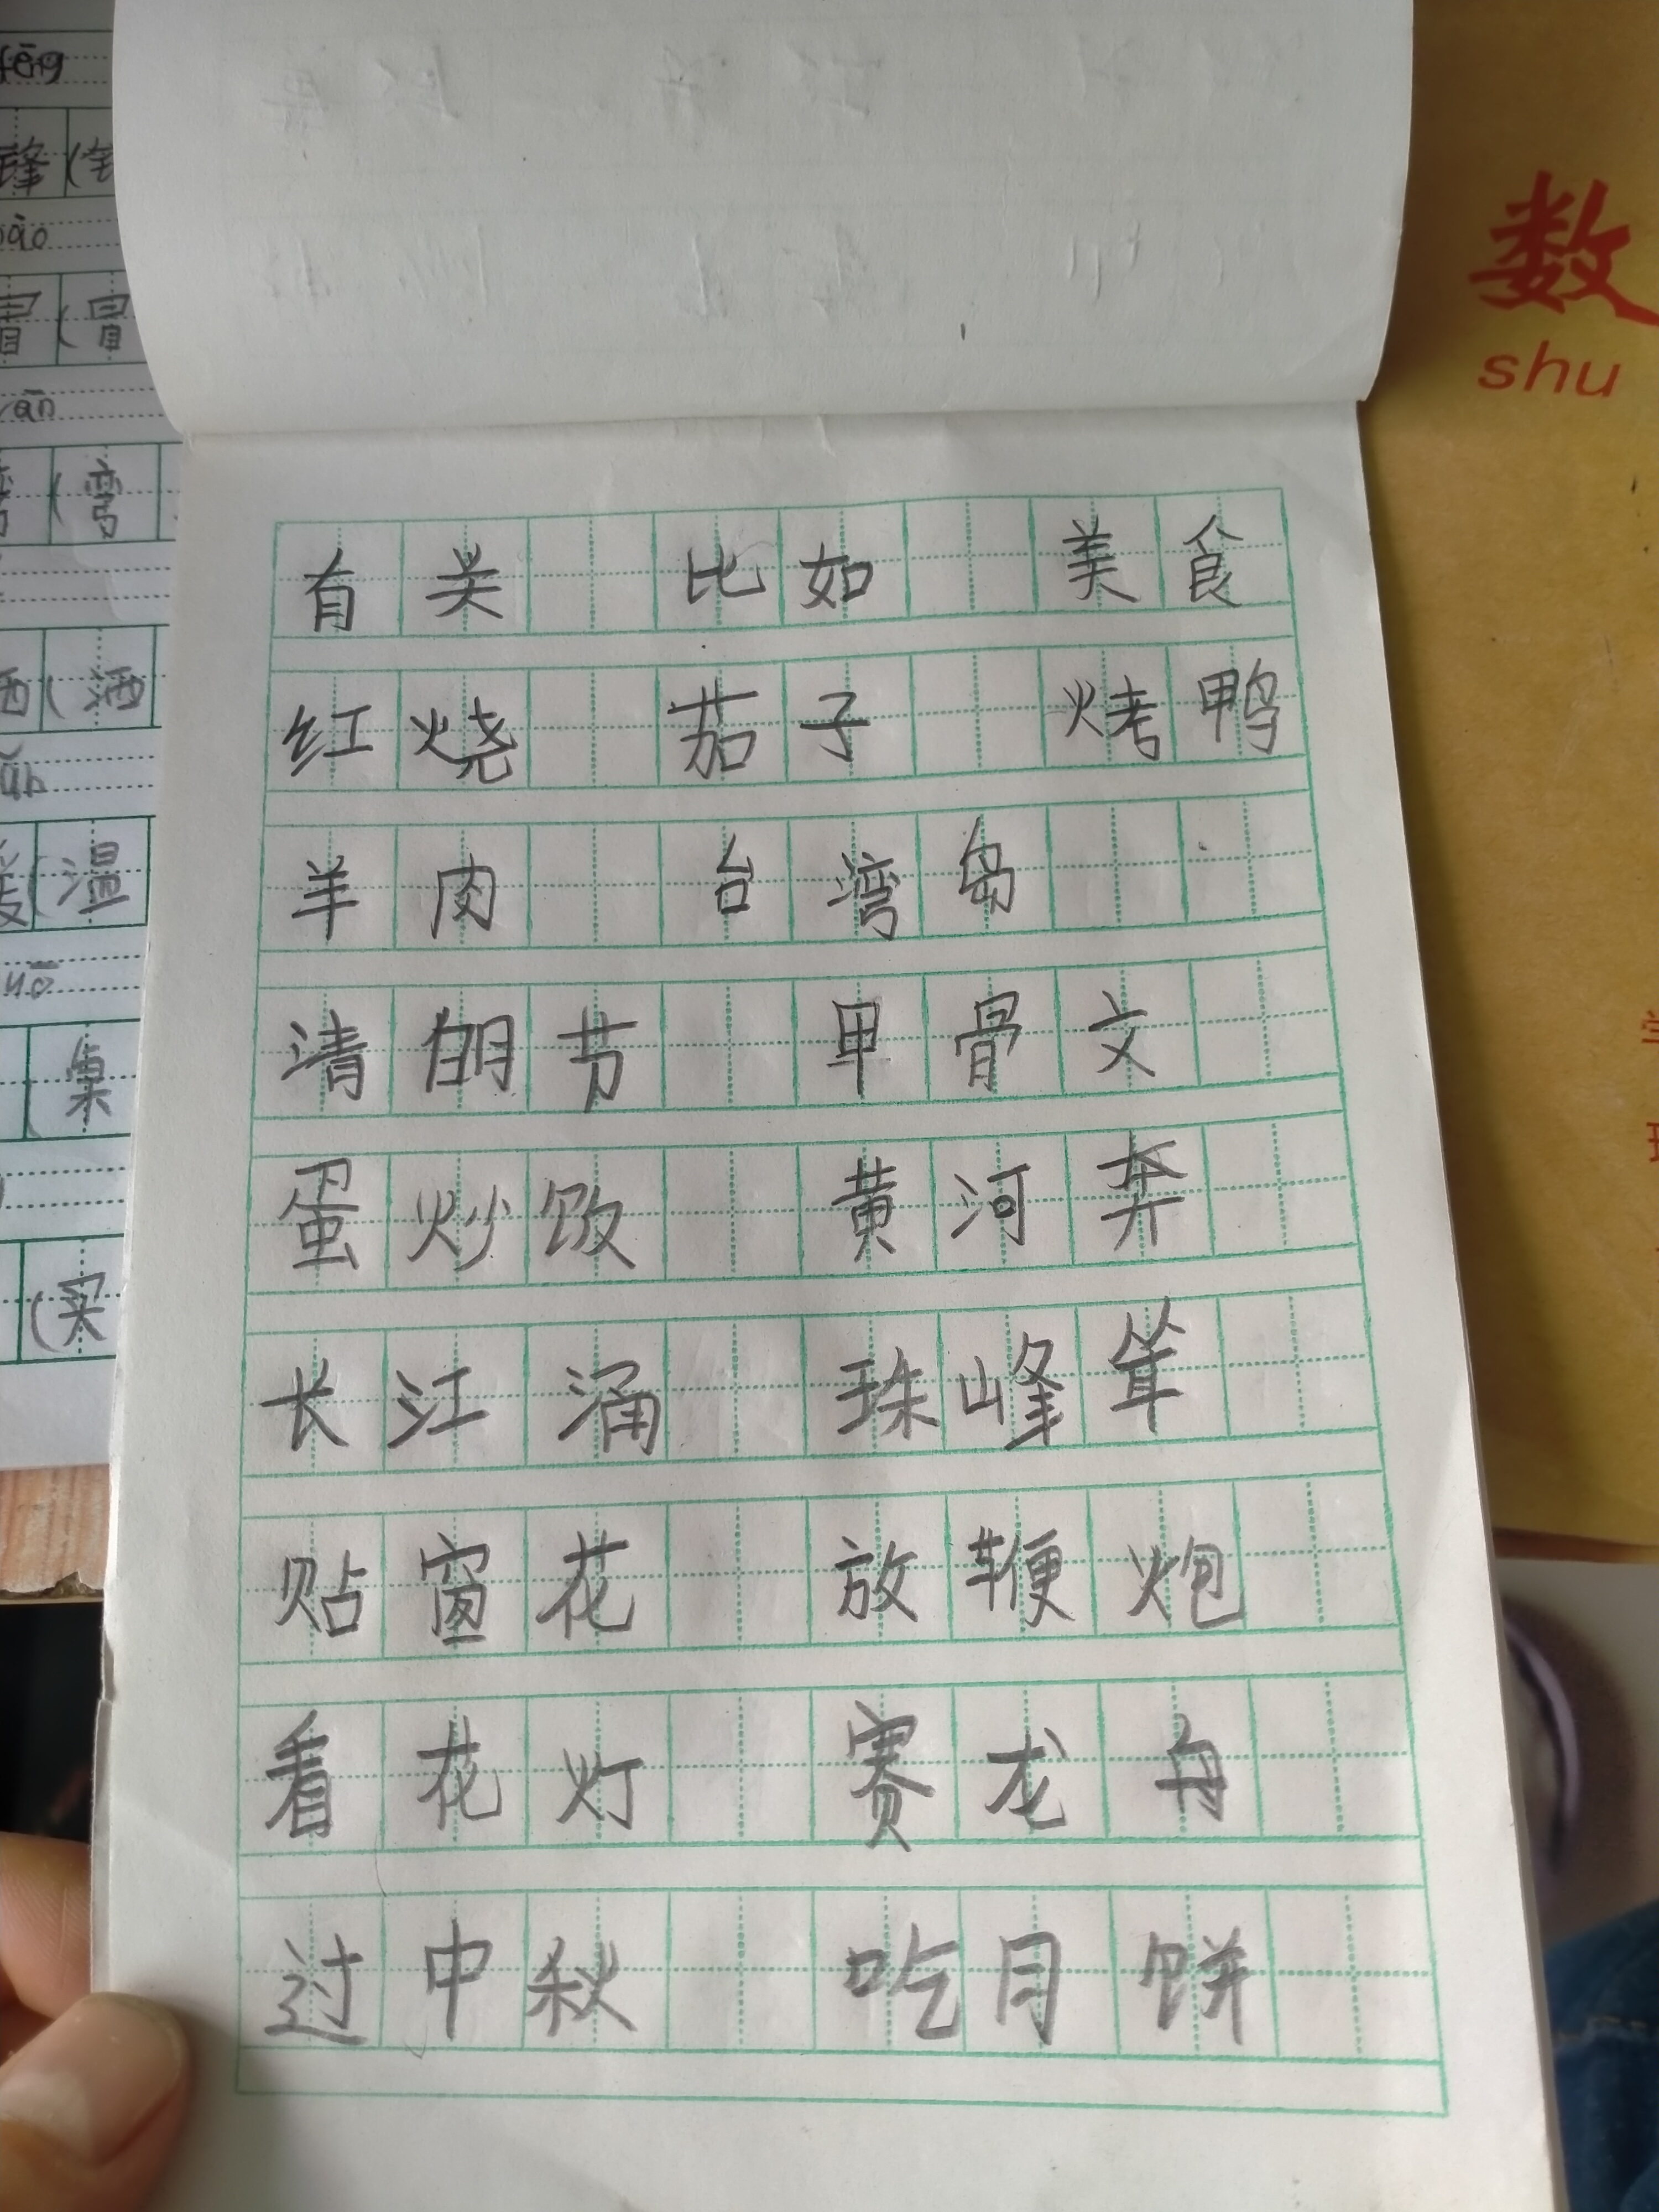 fēng
锋
冒 ( 冒
弯 ( 弯
洒 ( 洒
( 温
( 巢
( 买
数
shu
有 关 比 如 美 食
红 烧 茄 子 烤 鸭
羊 肉 台 湾 岛
清 明 节 甲 骨 文
蛋 炒 饭 黄 河 奔
长 江 涌 珠 峰 耸
贴 窗 花 放 鞭 炮
看 花 灯 赛 龙 舟
过 中 秋 吃 月 饼